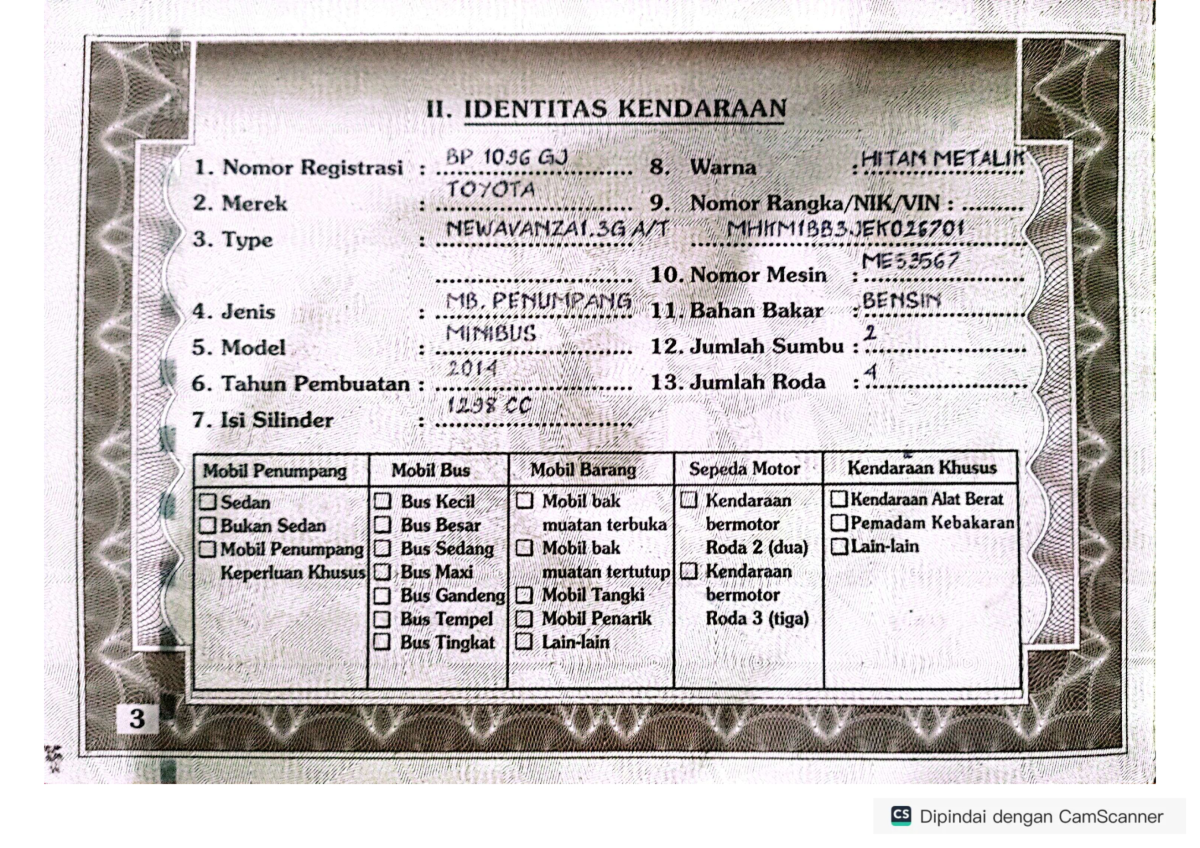 II. IDENTITAS KENDARAAN
1. Nomor Registrasi : BP 1096 GJ
2. Merek : TOYOTA
3. Type : NEWAVANZA1.3G A/T
4. Jenis : MB. PENUMPANG
5. Model : MINIBUS
6. Tahun Pembuatan : 2014
7. Isi Silinder : 1298 CC
8. Warna : HITAM METALIK
9. Nomor Rangka/NIK/VIN :
MHKM1BB3JEK026701
10. Nomor Mesin : ME53567
11. Bahan Bakar : BENSIN
12. Jumlah Sumbu : 2
13. Jumlah Roda : 4
Mobil Penumpang
Sedan
Bukan Sedan
Mobil Penumpang
Keperluan Khusus
Mobil Bus
Bus Kecil
Bus Besar
Bus Sedang
Bus Maxi
Bus Gandeng
Bus Tempel
Bus Tingkat
Mobil Barang
Mobil bak
muatan terbuka
Mobil bak
muatan tertutup
Mobil Tangki
Mobil Penarik
Lain-lain
Sepeda Motor
Kendaraan
bermotor
Roda 2 (dua)
Kendaraan
bermotor
Roda 3 (tiga)
Kendaraan Khusus
Kendaraan Alat Berat
Pemadam Kebakaran
Lain-lain
3
CS Dipindai dengan CamScanner